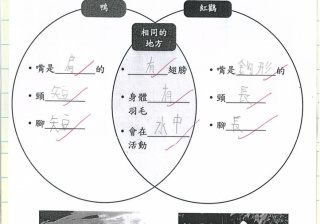 鴨
紅鸛
相同的
地方
• 嘴是扁的
• 頸短
• 腳短
• 有翅膀
• 身體有
羽毛
• 會在水中
活動
• 嘴是鈎形的
• 頸長
• 腳長